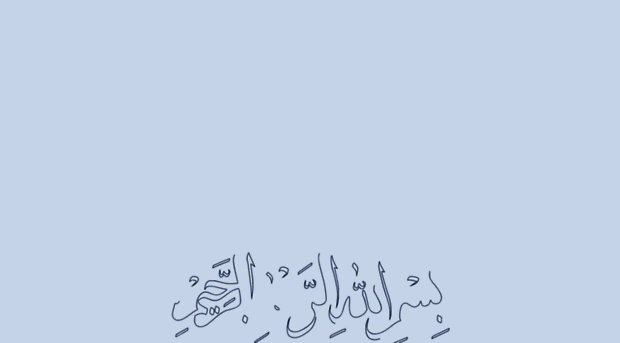 بِسْمِ اللّٰهِ الرَّ الرَّحِيْمِ